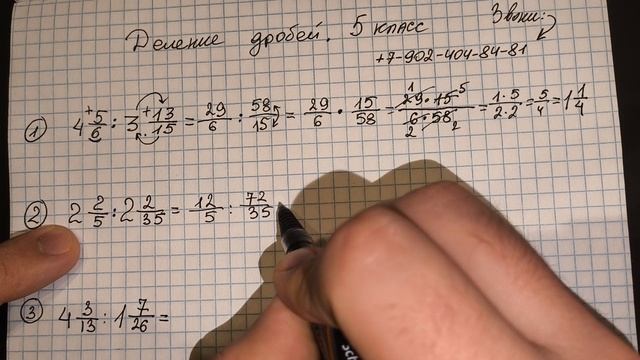 Деление дробей. 5 класс
Звони:
+7-902-404-84-81
① 4 5/6 : 3 13/15 = 29/6 : 58/15 = 29/6 · 15/58 = 29·15/6·58 = 1·5/2·2 = 5/4 = 1 1/4
② 2 2/5 : 2 2/35 = 12/5 : 72/35
③ 4 3/13 : 1 7/26 =